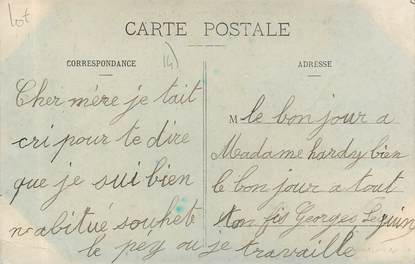 lot
CARTE POSTALE
14
CORRESPONDANCE
ADRESSE
Cher mére je tait
cri pour te dire
que je sui bien
n abitué souhete
le péy ou je travaille
M le bonjour a
Madame hardy bien
le bonjour a tout
ton fis Georges